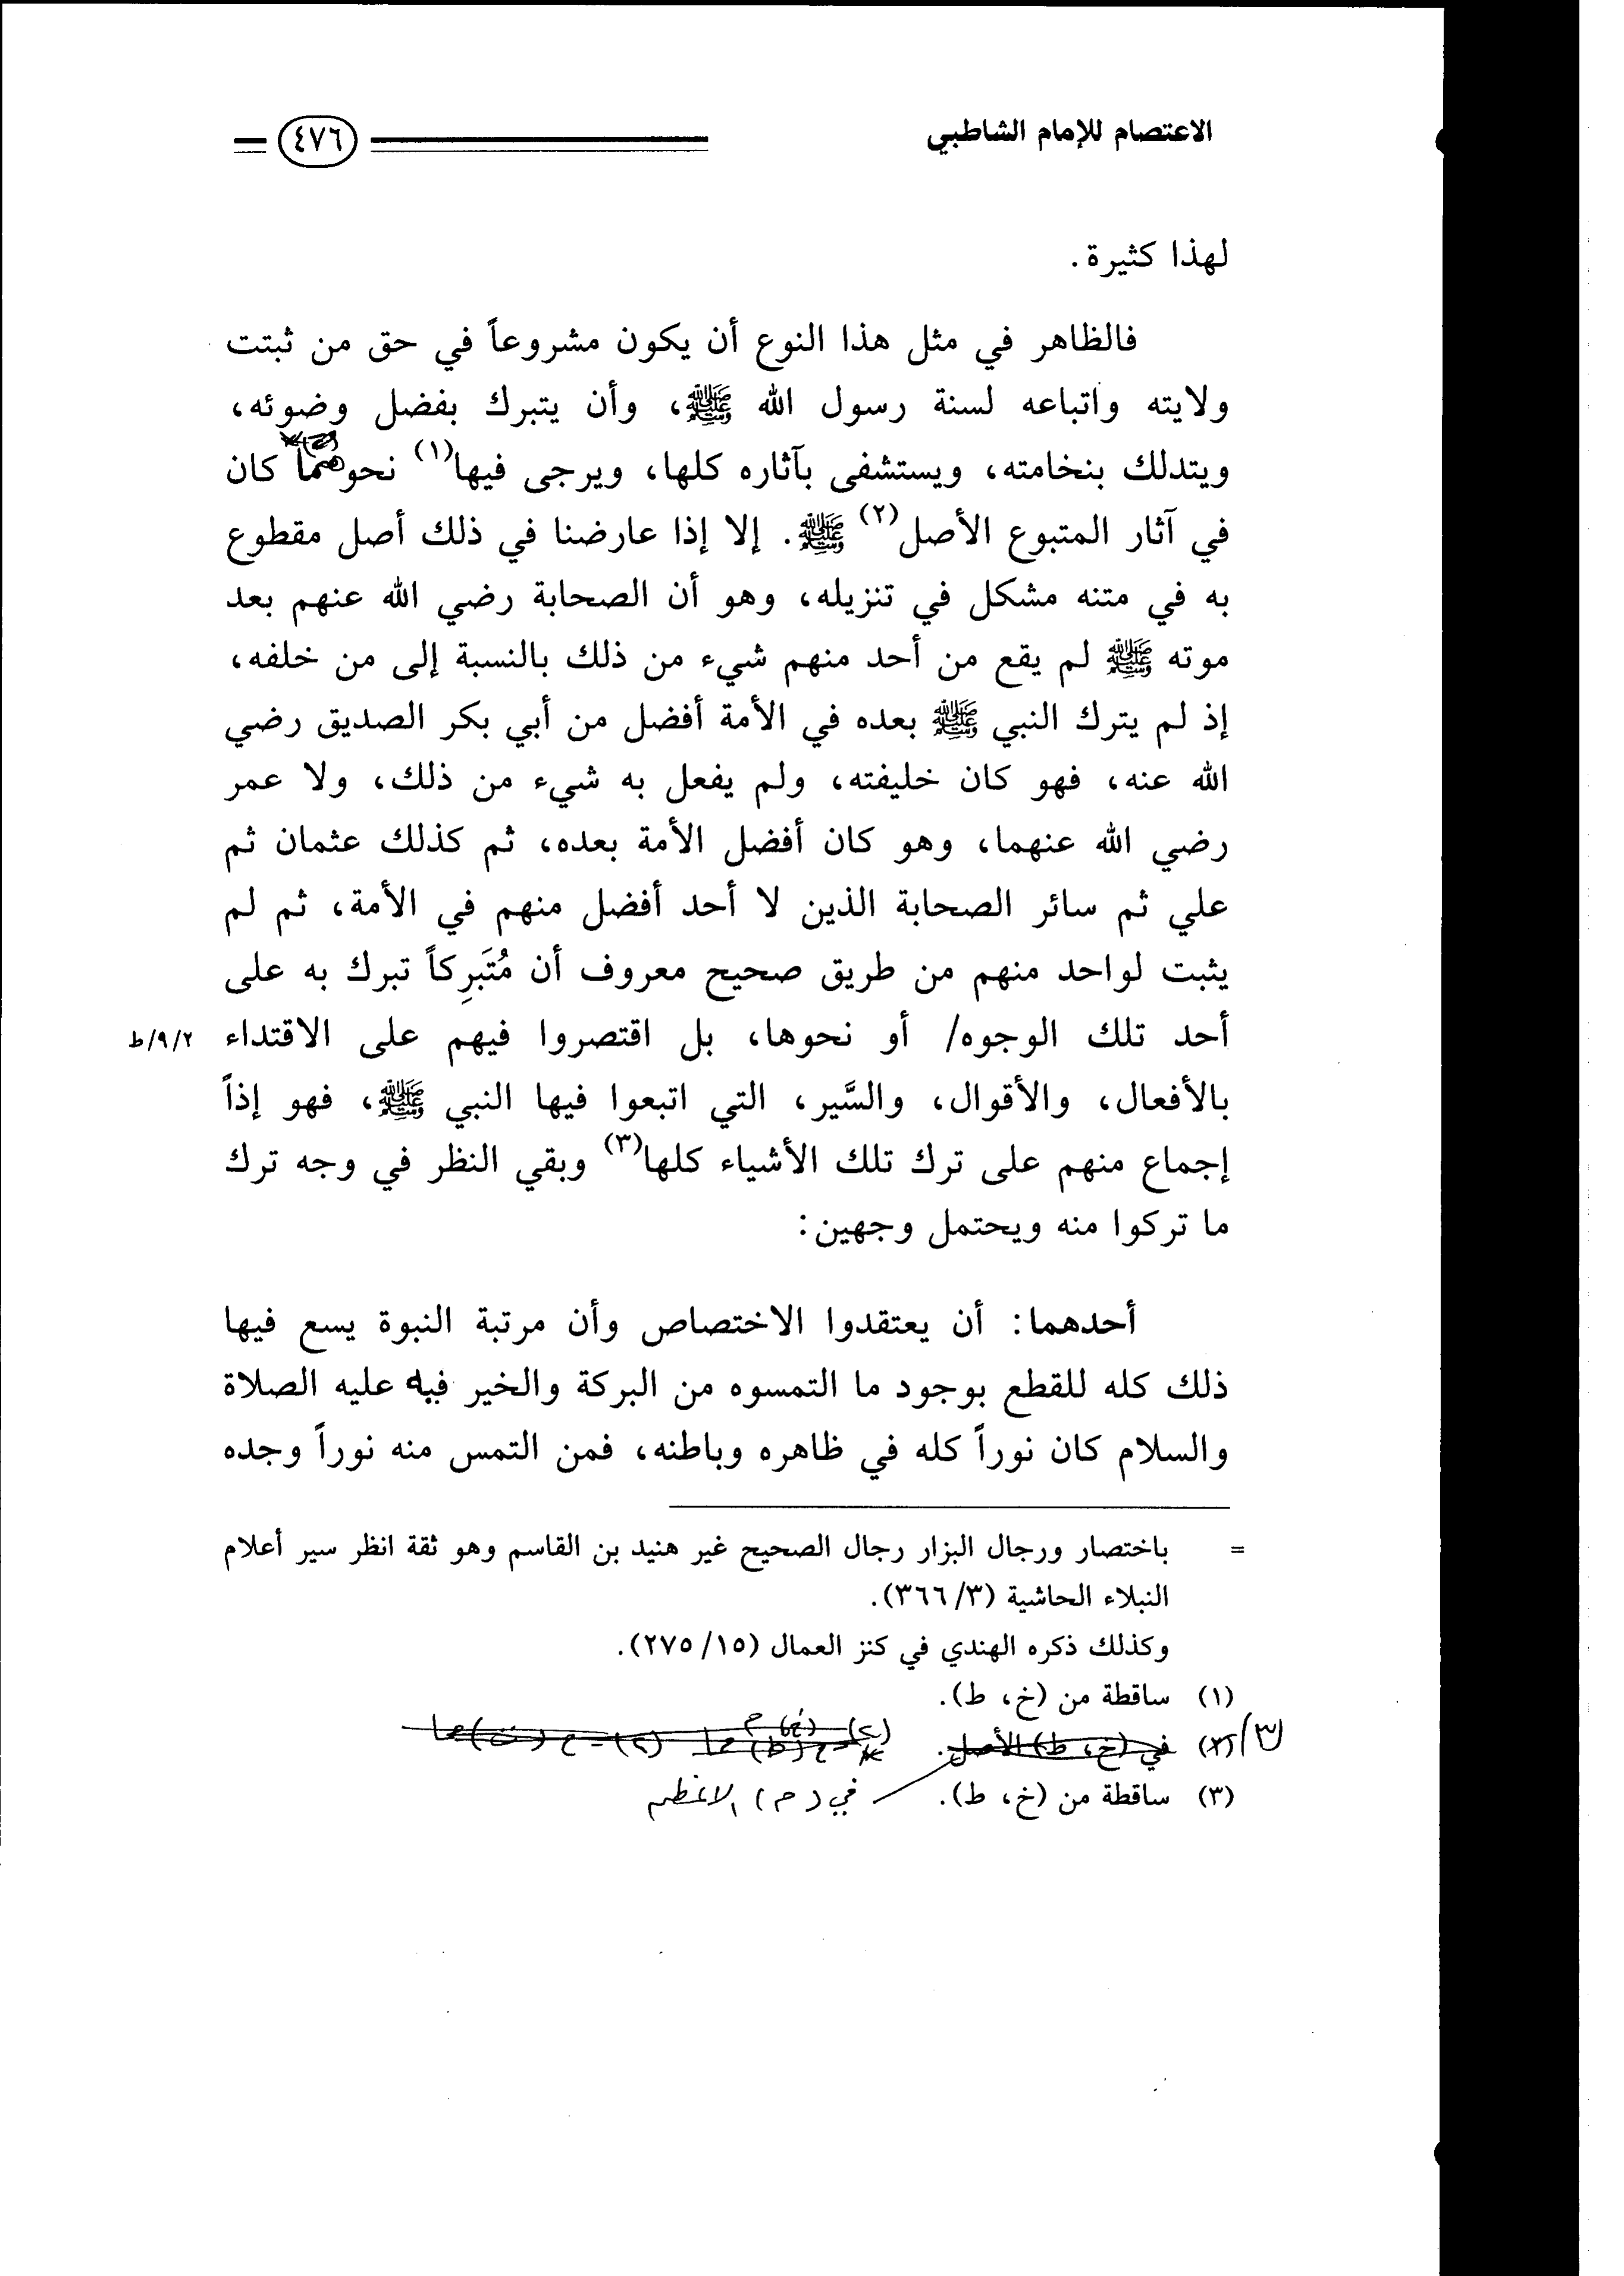 الاعتصام للإمام الشاطبي
٤٧٦
لهذا كثيرة.
فالظاهر في مثل هذا النوع أن يكون مشروعاً في حق من ثبتت
ولايته واتباعه لسنة رسول الله ﷺ، وأن يتبرك بفضل وضوئه،
ويتدلك بنخامته، ويستشفى بآثاره كلها، ويرجى فيها(١) نحو كان
في آثار المتبوع الأصل(٢) ﷺ. إلا إذا عارضنا في ذلك أصل مقطوع
به في متنه مشكل في تنزيله، وهو أن الصحابة رضي الله عنهم بعد
موته ﷺ لم يقع من أحد منهم شيء من ذلك بالنسبة إلى من خلفه،
إذ لم يترك النبي ﷺ بعده في الأمة أفضل من أبي بكر الصديق رضي
الله عنه، فهو كان خليفته، ولم يفعل به شيء من ذلك، ولا عمر
رضي الله عنهما، وهو كان أفضل الأمة بعده، ثم كذلك عثمان ثم
علي ثم سائر الصحابة الذين لا أحد أفضل منهم في الأمة، ثم لم
يثبت لواحد منهم من طريق صحيح معروف أن مُتَبرِكاً تبرك به على
أحد تلك الوجوه/ أو نحوها، بل اقتصروا فيهم على الاقتداء
٢/٩/ط
بالأفعال، والأقوال، والسَّير، التي اتبعوا فيها النبي ﷺ، فهو إذاً
إجماع منهم على ترك تلك الأشياء كلها(٣) وبقي النظر في وجه ترك
ما تركوا منه ويحتمل وجهين:
أحدهما: أن يعتقدوا الاختصاص وأن مرتبة النبوة يسع فيها
ذلك كله للقطع بوجود ما التمسوه من البركة والخير فيه عليه الصلاة
والسلام كان نوراً كله في ظاهره وباطنه، فمن التمس منه نوراً وجده
= باختصار ورجال البزار رجال الصحيح غير هنيد بن القاسم وهو ثقة انظر سير أعلام
النبلاء الحاشية (٣/٣٦٦).
وكذلك ذكره الهندي في كنز العمال (١٥/٢٧٥).
(١) ساقطة من (خ، ط).
٣/ (٢) في (خ، ط) الأصل.
(٣) ساقطة من (خ، ط). في (م) الاعظم